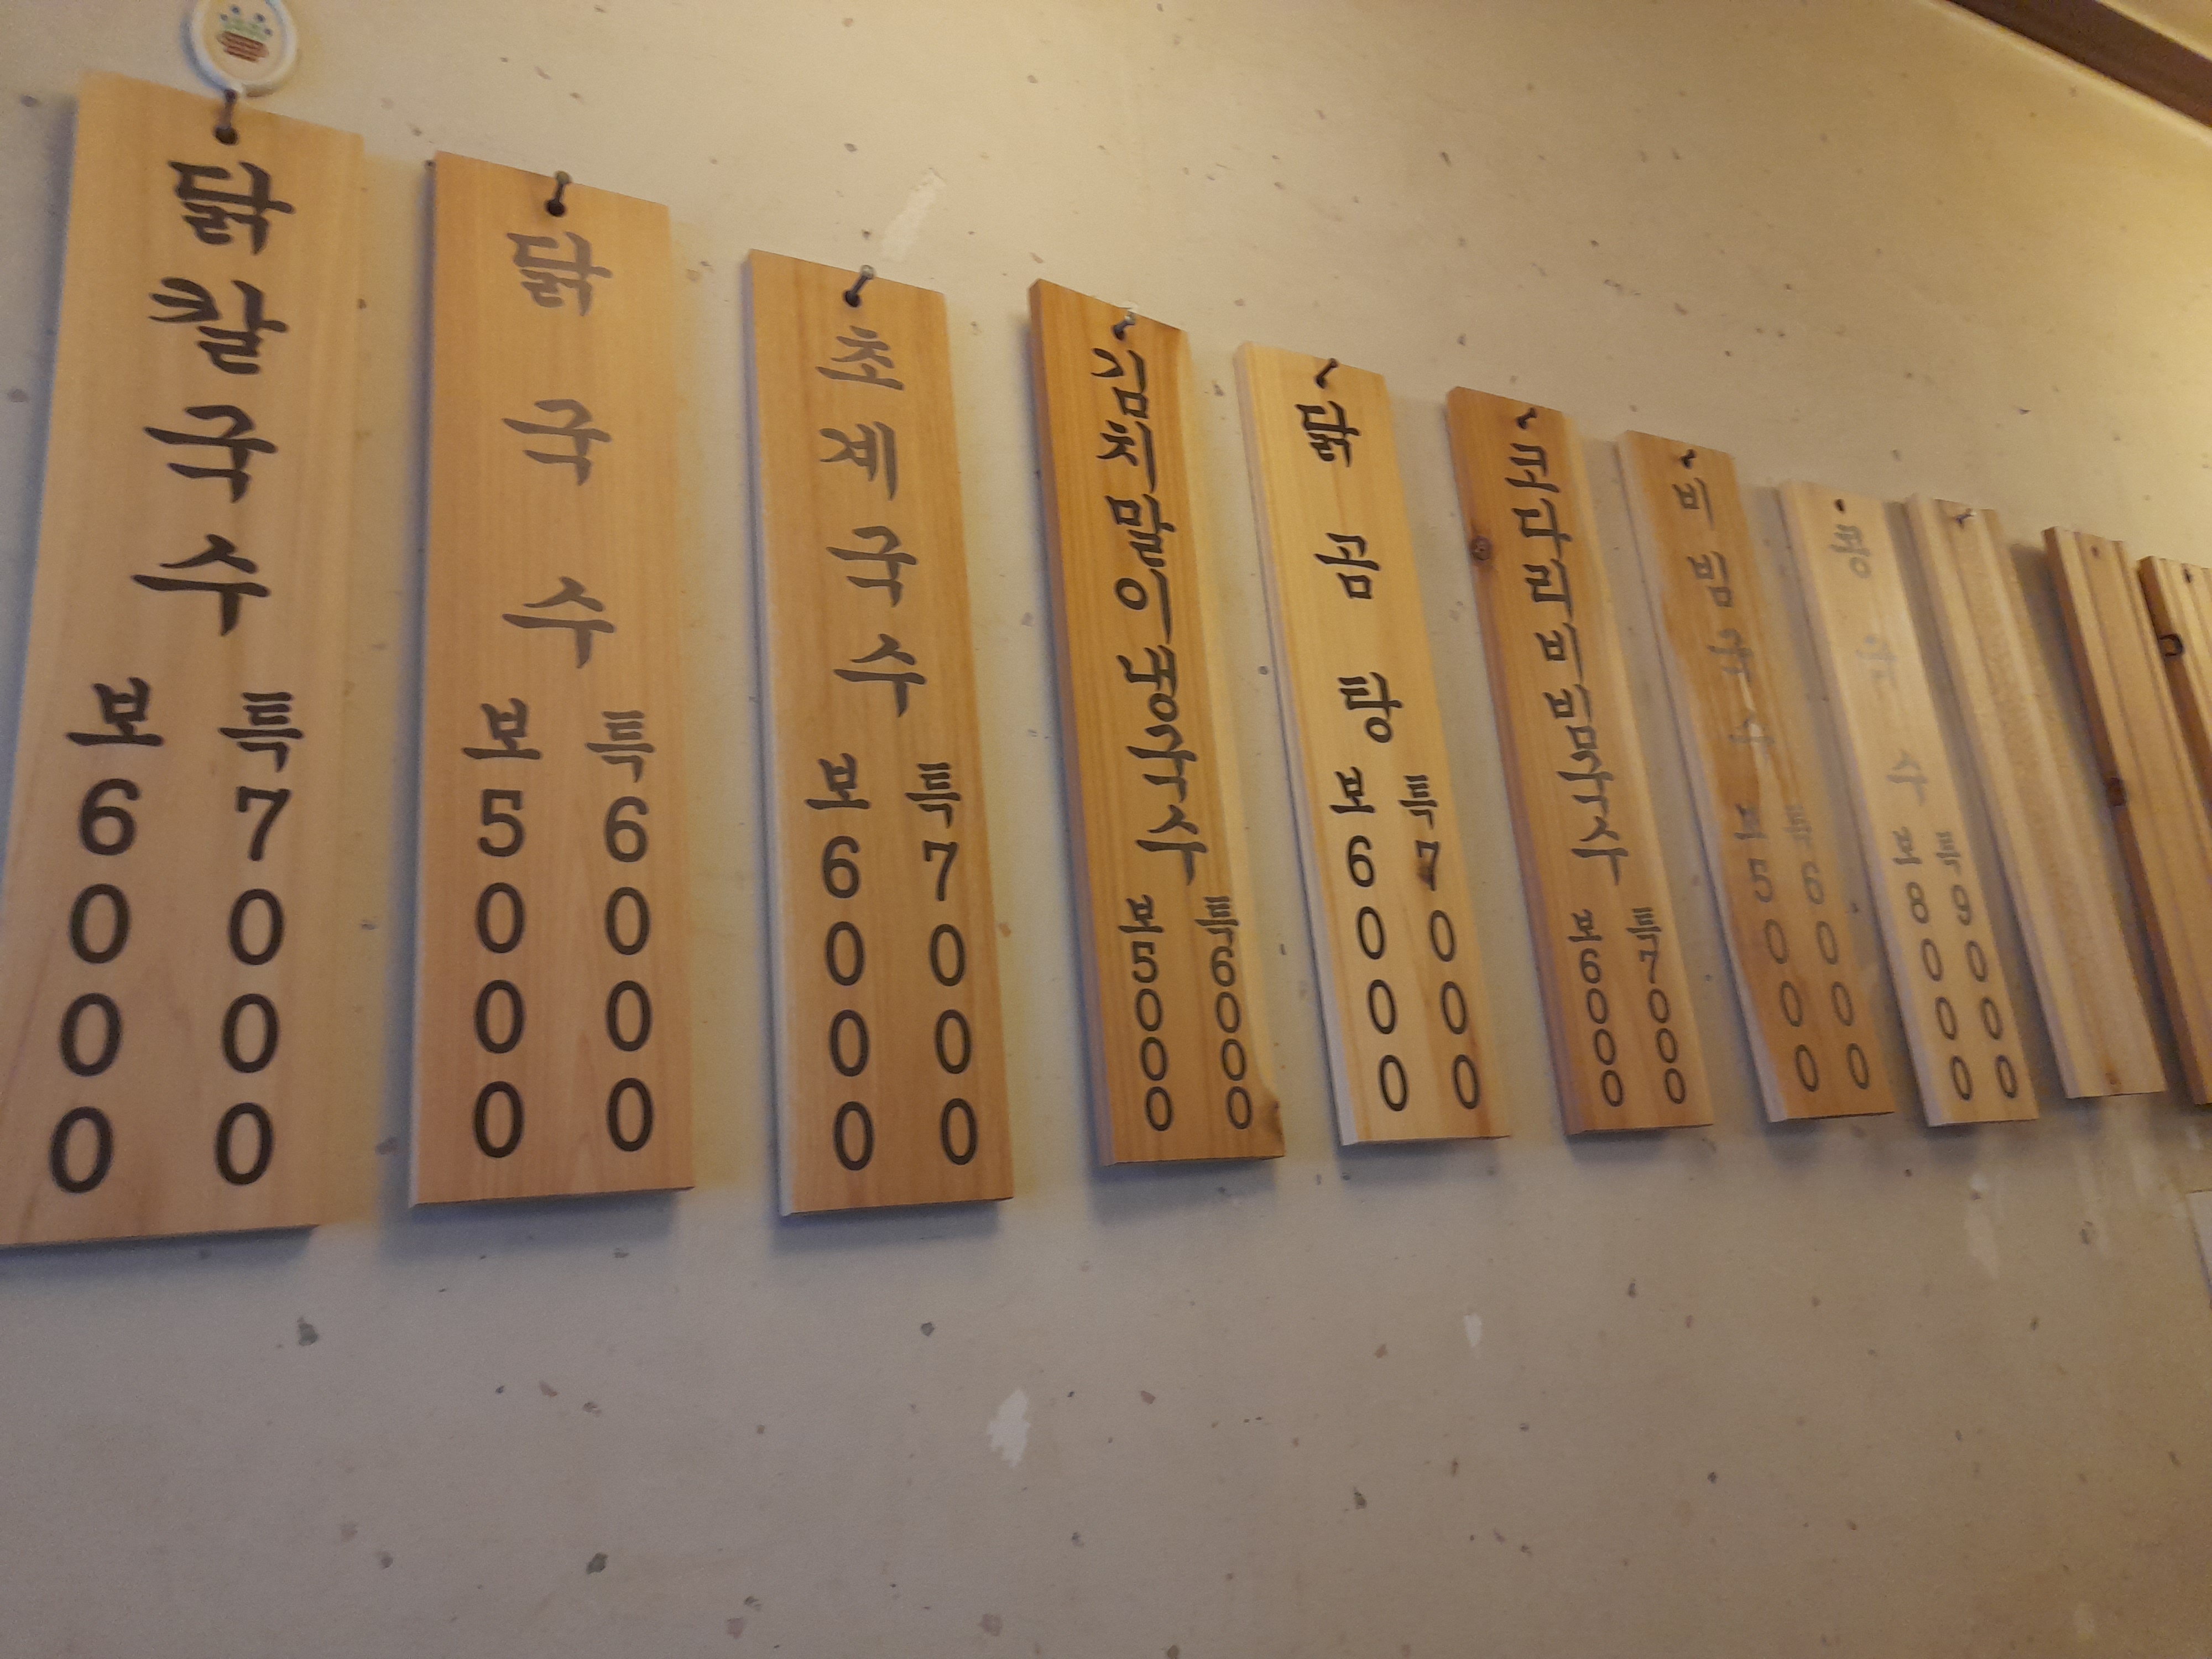 닭칼국수
보6000 특7000
닭국수
보5000 특6000
초계국수
보6000 특7000
김치말이콩국수
보5000 특6000
닭곰탕
보6000 특7000
코다리비빔국수
보6000 특7000
비빔국수
보5000 특6000
콩국수
보8000 특9000